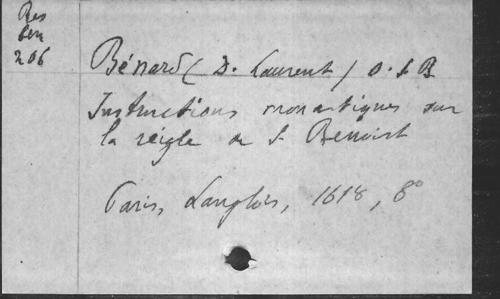 Res
Ben
206
Bénard (D. Laurent) O. S. B
Instructions monastiques sur
la reigle de S. Benoist
Paris, Langlois, 1618, 8°